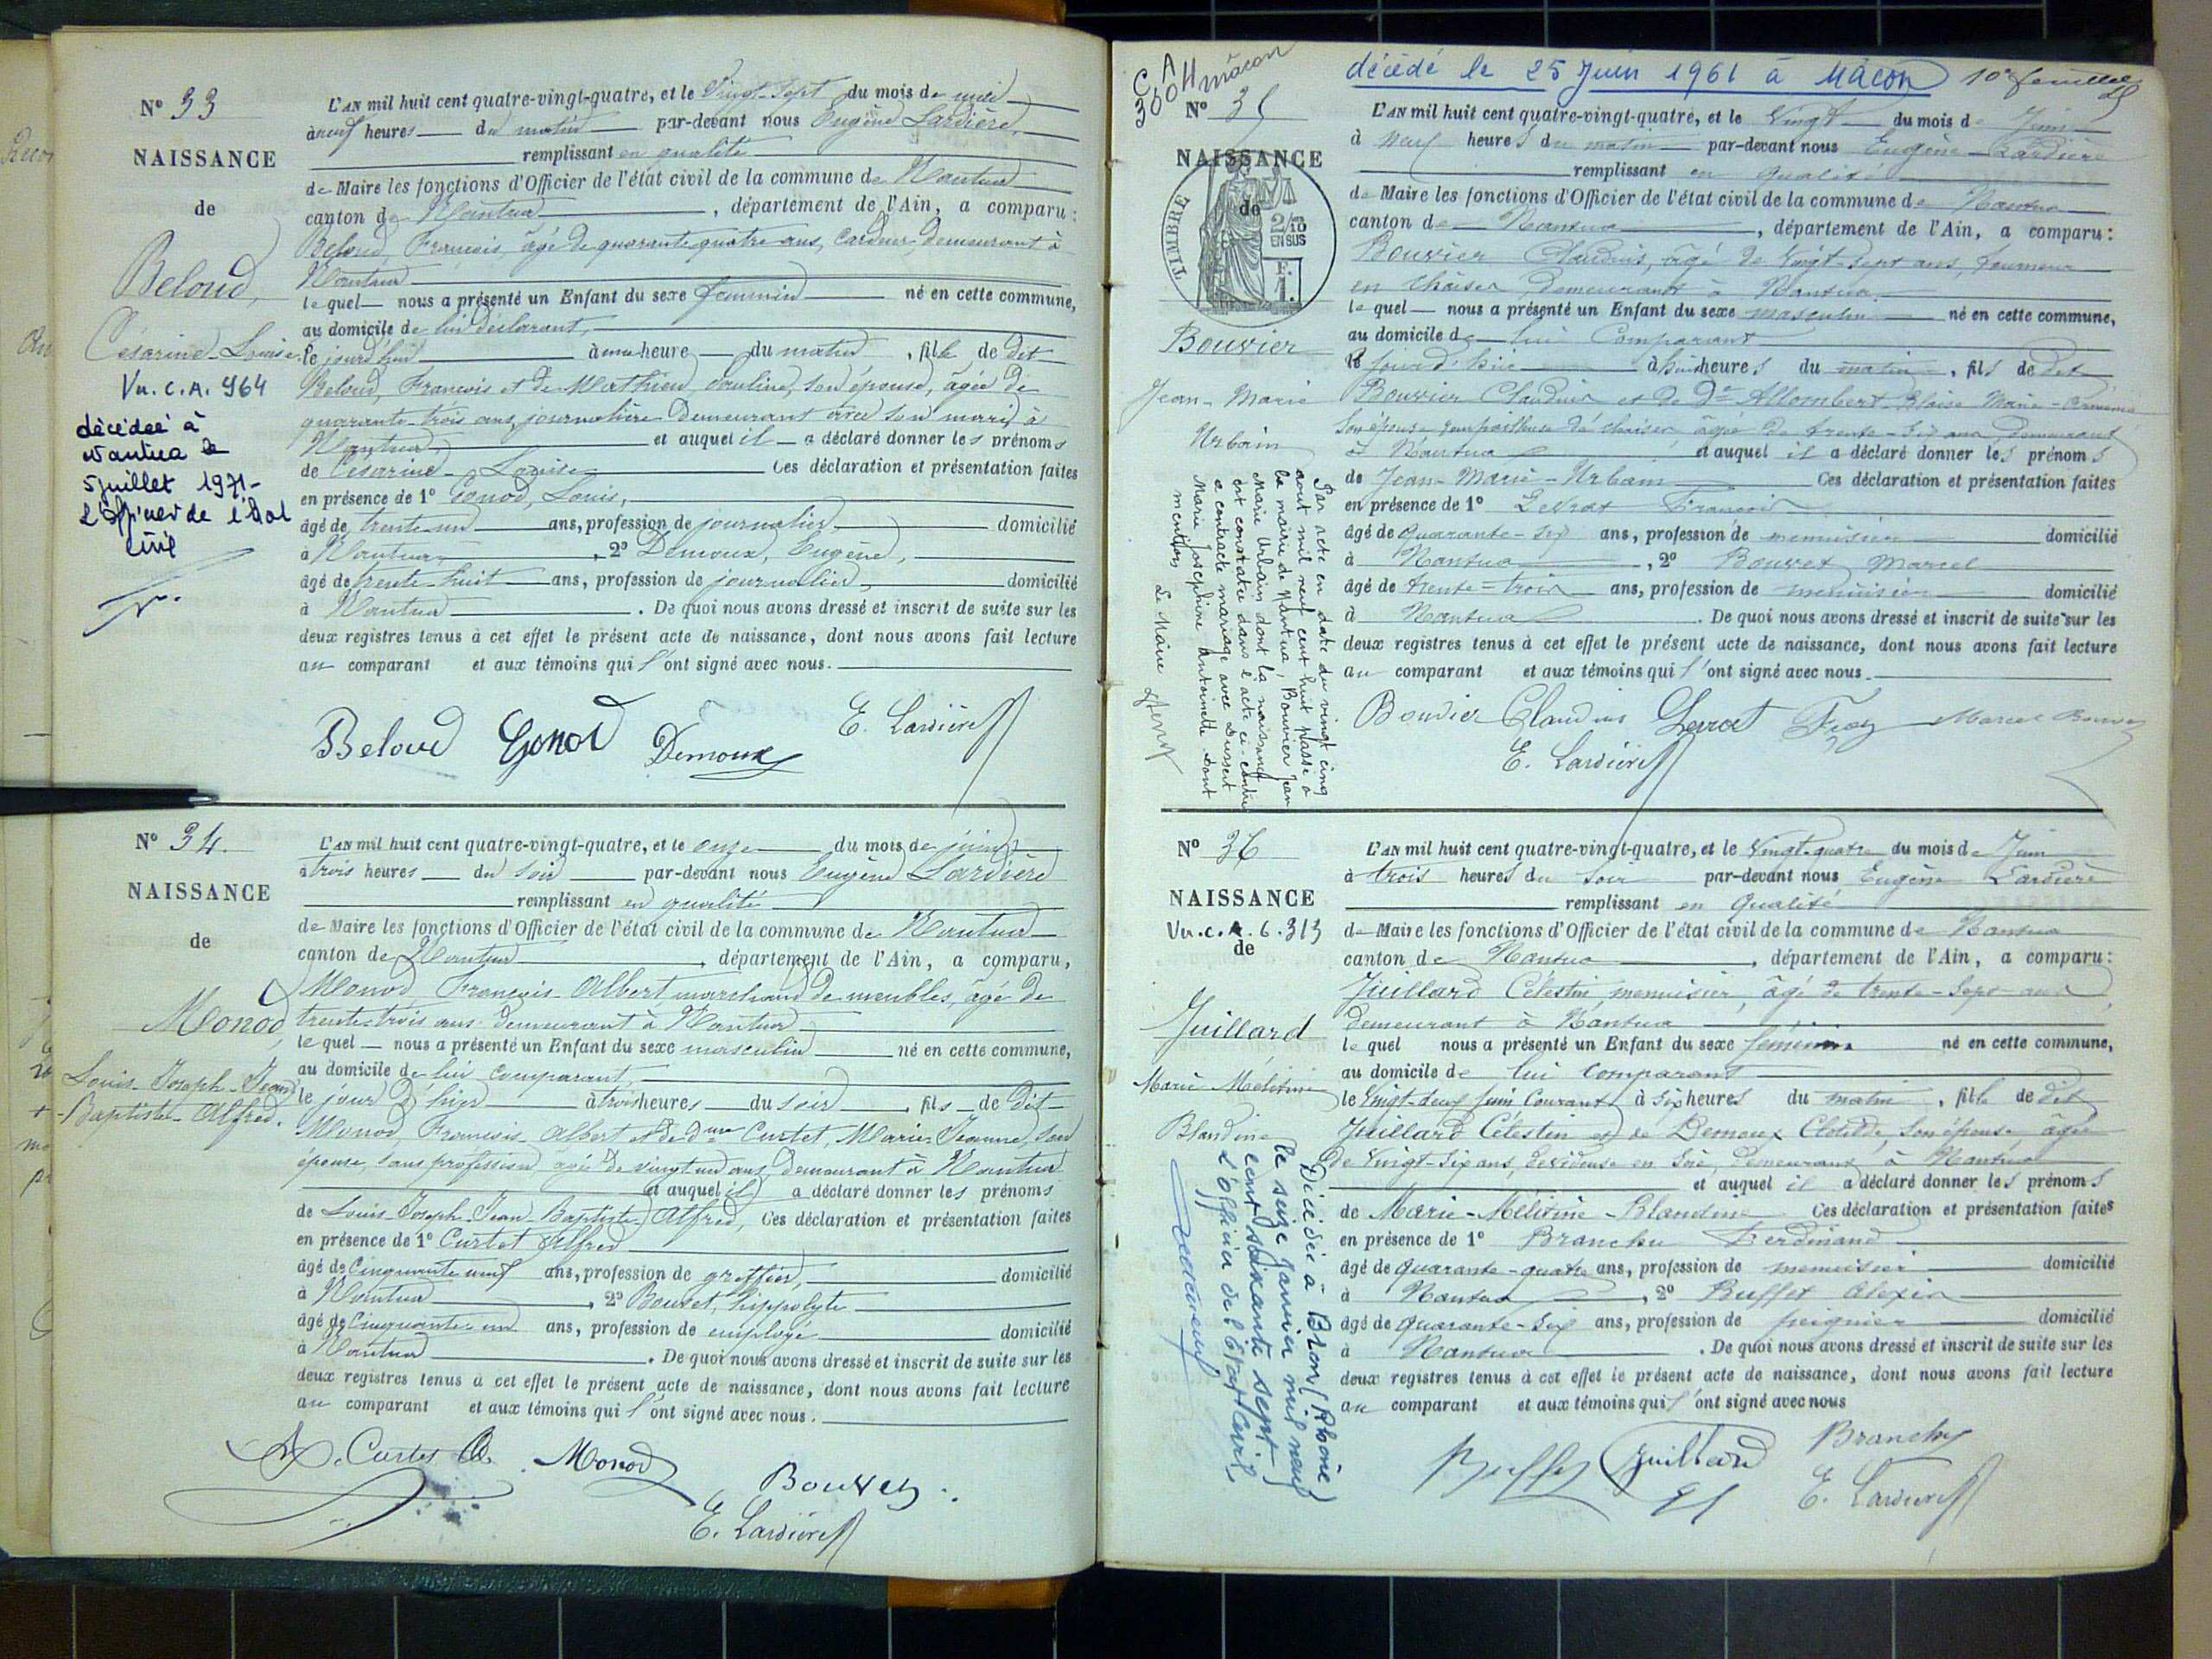 N° 33
NAISSANCE
de
Beloud,
Césarine-Louise
Vu. C.A. 964
décédée à
Nantua le
5 juillet 1971-
L'officier de l'état
civil
L'AN mil huit cent quatre-vingt-quatre, et le Vingt-Sept du mois de mai
à neuf heures du matin par-devant nous Eugène Lardière,
remplissant en qualité
de Maire les fonctions d'Officier de l'état civil de la commune de Nantua
canton de Nantua, département de l'Ain, a comparu :
Beloud, François, âgé de quarante quatre ans, cardeur, demeurant à
Nantua
le quel nous a présenté un Enfant du sexe feminin né en cette commune,
au domicile de lui déclarant,
le jourd'hui à une heure du matin, fille de dit
Beloud, François et de Mathieu Pauline, son épouse, âgée de
quarante-trois ans, journalière demeurant avec son mari, à
Nantua, et auquel il a déclaré donner les prénoms
de Césarine-Louise Ces déclaration et présentation faites
en présence de 1° Gonod, Louis,
âgé de trente un ans, profession de journalier, domicilié
à Nantua, 2° Demoux, Eugène,
âgé de trente-huit ans, profession de journalier, domicilié
à Nantua. De quoi nous avons dressé et inscrit de suite sur les
deux registres tenus à cet effet le présent acte de naissance, dont nous avons fait lecture
au comparant et aux témoins qui l'ont signé avec nous.
Beloud Gonod Demoux E. Lardière
N° 34.
NAISSANCE
de
Monod,
Louis-Joseph-Jean
-Baptiste-Alfred.
L'AN mil huit cent quatre-vingt-quatre, et le onze du mois de juin
à trois heures du soir par-devant nous Eugène Lardière
remplissant en qualité
de Maire les fonctions d'Officier de l'état civil de la commune de Nantua
canton de Nantua, département de l'Ain, a comparu,
Monod, François-Albert marchand de meubles, âgé de
trente-trois ans demeurant à Nantua
le quel nous a présenté un Enfant du sexe masculin né en cette commune,
au domicile de lui comparant,
le jour d'hier à trois heures du soir, fils de dit
Monod, François-Albert et de dme Curtet, Marie-Jeanne, son
épouse, sans profession âgée de vingt un ans, demeurant à Nantua
et auquel il a déclaré donner les prénoms
de Louis-Joseph-Jean-Baptiste-Alfred, Ces déclaration et présentation faites
en présence de 1° Curtet Alfred
âgé de Cinquante neuf ans, profession de greffier, domicilié
à Nantua, 2° Bouvet, hippolyte
âgé de Cinquante-un ans, profession de employé domicilié
à Nantua. De quoi nous avons dressé et inscrit de suite sur les
deux registres tenus à cet effet le présent acte de naissance, dont nous avons fait lecture
au comparant et aux témoins qui l'ont signé avec nous.
Curtet A. Monod Bouvet
E. Lardière
C A
360 H mâcon
décédé le 25 Juin 1961 à Mâcon
10e feuillet
N° 35
NAISSANCE
de
TIMBRE
2/10
EN SUS
F.
1.
Bouvier
Jean-Marie
Urbain
Par acte en date du vingt cinq
août mil neuf cent huit passé à
la mairie de Nantua, Bouvier Jean
Marie Urbain dont la naissance
est constatée dans l'acte ci-contre
a contracté mariage avec
Marie Joséphine Antoinette dont
mention
Le Maire
L'AN mil huit cent quatre-vingt-quatre, et le Vingt du mois de Juin
à neuf heures du matin par-devant nous Eugène Lardière
remplissant en qualité
de Maire les fonctions d'Officier de l'état civil de la commune de Nantua
canton de Nantua, département de l'Ain, a comparu :
Bouvier Claudius, âgé de Vingt-Sept ans, tourneur
en chaises, demeurant à Nantua
le quel nous a présenté un Enfant du sexe masculin né en cette commune,
au domicile de lui Comparant
le jour d'hier à huit heures du matin, fils de dit
Bouvier Claudius et de De Allombert Blaise Marie-
son épouse de chaises âgée de trente-six ans, demeurant
à Nantua et auquel il a déclaré donner les prénoms
de Jean-Marie-Urbain Ces déclaration et présentation faites
en présence de 1° Levrat François
âgé de quarante-six ans, profession de menuisier domicilié
à Nantua, 2° Bouvet Marcel
âgé de trente-trois ans, profession de menuisier domicilié
à Nantua. De quoi nous avons dressé et inscrit de suite sur les
deux registres tenus à cet effet le présent acte de naissance, dont nous avons fait lecture
au comparant et aux témoins qui l'ont signé avec nous.
Bouvier Claudius Levrat Marcel Bouvet
E. Lardière
N° 36
NAISSANCE
Vu. C.A. 6.313
de
Juillard
Marie Mélitine
Blandine
Décédée à Bron (Rhône)
le seize janvier mil neuf
cent soixante sept
L'officier de l'Etat Civil,
L'AN mil huit cent quatre-vingt-quatre, et le Vingt-quatre du mois de Juin
à trois heures du soir par-devant nous Eugène Lardière
remplissant en Qualité
de Maire les fonctions d'Officier de l'état civil de la commune de Nantua
canton de Nantua, département de l'Ain, a comparu :
Juillard Célestin, menuisier, âgé de trente-sept ans
demeurant à Nantua
le quel nous a présenté un Enfant du sexe féminin né en cette commune,
au domicile de lui comparant
le Vingt-deux Juin Courant, à six heures du matin, fille de dit
Juillard Célestin et de Demoux Clotilde, son épouse âgée
de Vingt-six ans, dévideuse en soie, demeurant à Nantua
et auquel il a déclaré donner les prénoms
de Marie-Mélitine-Blandine Ces déclaration et présentation faites
en présence de 1° Branchu Ferdinand
âgé de quarante-quatre ans, profession de menuisier domicilié
à Nantua, 2° Buffet Alexis
âgé de quarante-six ans, profession de peignier domicilié
à Nantua. De quoi nous avons dressé et inscrit de suite sur les
deux registres tenus à cet effet le présent acte de naissance, dont nous avons fait lecture
au comparant et aux témoins qui l'ont signé avec nous
Buffet Juillard Branchu
E. Lardière